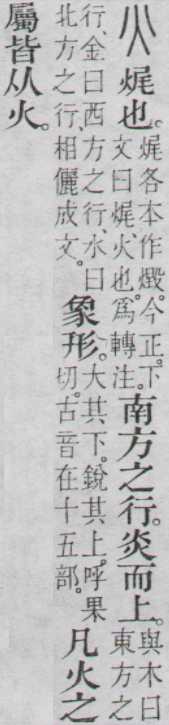 火 𤈦也。𤈦各本作燬。今正。下文曰𤈦、火也。爲轉注。南方之行。炎而上。與木曰東方之
行、金曰西方之行、水曰北方之行、相儷成文。象形。大其下。銳其上。呼果切。古音在十五部。凡火之
屬皆从火。